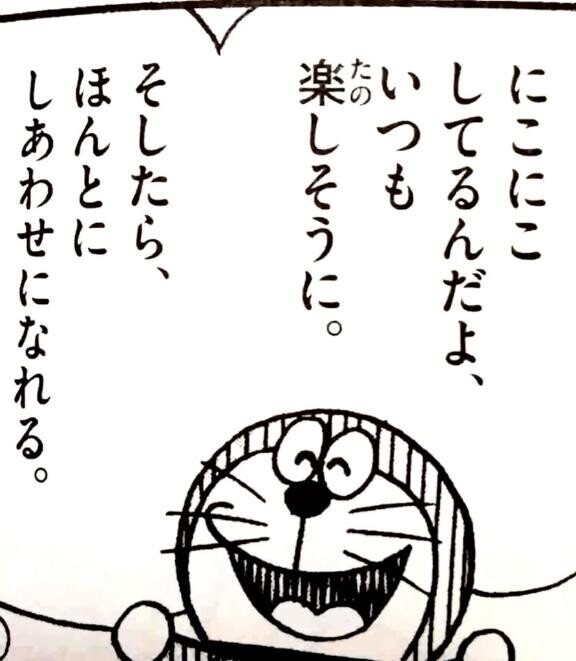 にこにこ
してるんだよ、
いつも
楽しそうに。
たの
そしたら、
ほんとに
しあわせになれる。